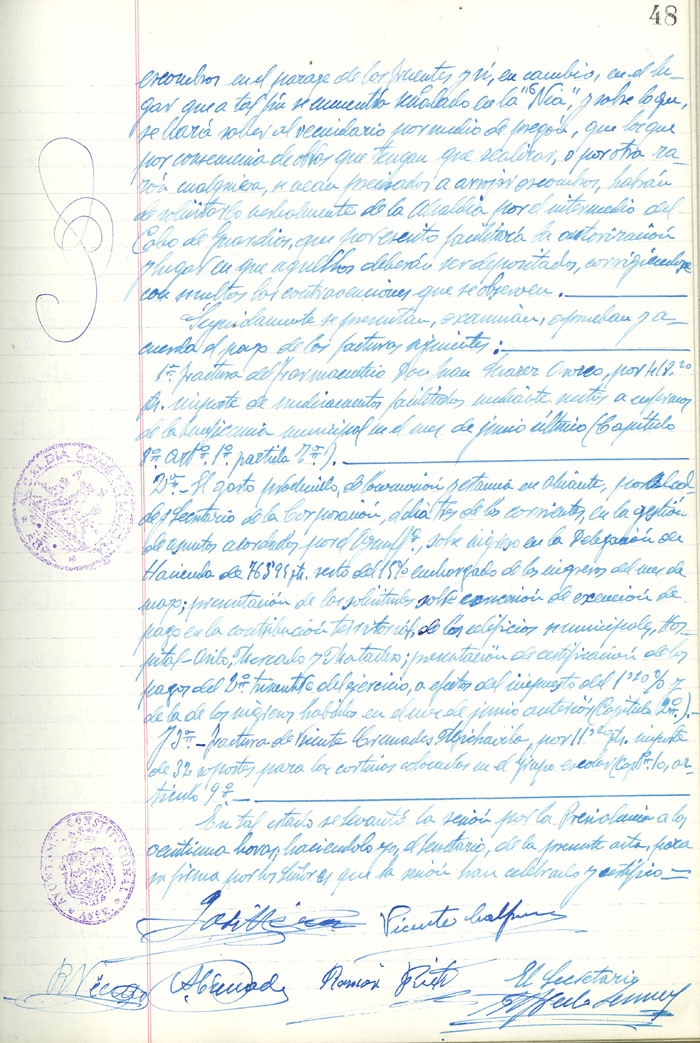 48
escombros en el parage de los fuentes y sí, en cambio, en el lu-
gar que a tal fin se encuentra señalado en la "Nía", y sobre lo que,
se hará saber al vecindario por medio de pregón, que los que
por consecuencia de obras que tengan que realizar, o por otra ra-
zón cualquiera, se vean precisados a arrojar escombros, habrán
de solicitarlo verbalmente de la Alcaldía por el intermedio del
Cabo de Guardias, que por escrito facilitará la autorización
y lugar en que aquellos deberán ser depositados, corrigiéndose
con multas las contravenciones que se observen.
Seguidamente se presentan, examinan, aprueban y a-
cuerda el pago de las facturas siguientes:
1ª. Factura del Farmacéutico Don Juan Suarez Orozco, por 418'20
pts. importe de medicamentos facilitados mediante recetas a enfermos
de la beneficencia municipal en el mes de junio último (Capítulo
8º. Artº. 1º. partida 2ª.).
2ª.- El gasto producido, de locomoción y estancia en Alicante, por el Alcal-
de y Secretario de la Corporación, el día tres de los corrientes, en la gestión
de asuntos acordados por el Ayuntº., sobre ingreso en la Delegación de
Hacienda de pts. resto del 15% embargado de los ingresos del mes de
mayo; presentación de las solicitudes sobre concesión de exención de
pago en la contribución territorial, de los edificios municipales, Hos-
pital-Asilo, Mercado y Matadero; presentación de certificación de los
pagos del 2º. trimestre del ejercicio, a efectos del impuesto del 1'20% y
de la de los ingresos habidos en el mes de junio anterior (Capítulo 2º.).-
Y 3ª.- Factura de Vicente Cremades por 11'20 pts. importe
de 32 soportes para las cortinas colocadas en el Grupo escolar (Capº. 10, ar-
tículo 9º.-
En tal estado se levantó la sesión por la Presidencia a las
veintiuna horas, haciéndolo yo, el Secretario, de la presente acta, para
su firma por los Señores que la sesión han celebrado y certifico.-
Vicente
Ramón
El Secretario